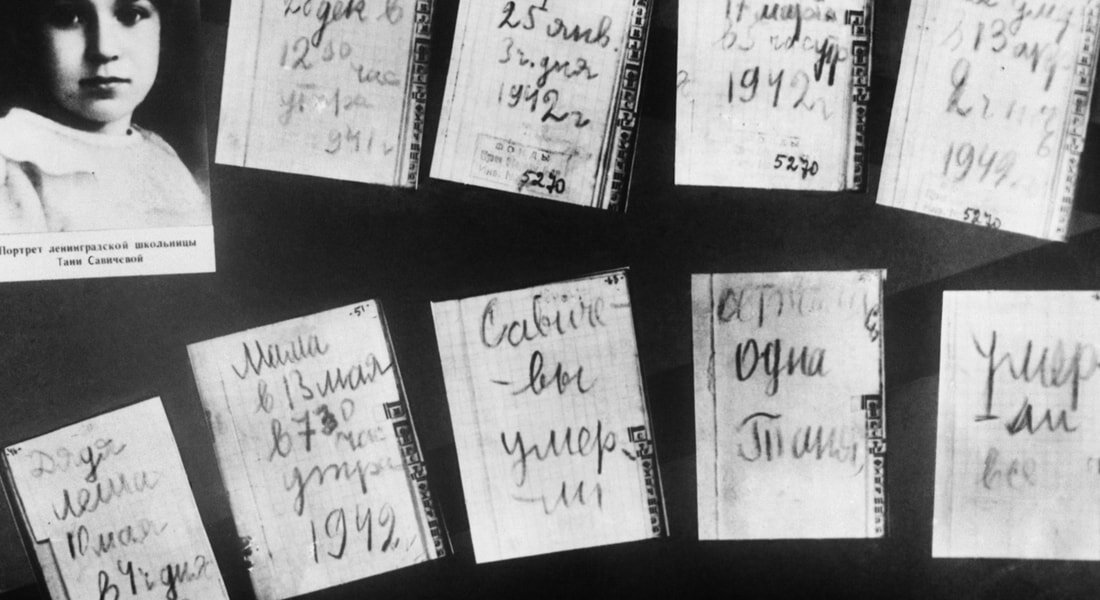 28 дек в
12 30 час
утра
941 г
25 янв.
3 ч. дня
1942 г
ФОНДЫ
5270
17 марта
в 5 час утр
1942 г
5270
в 13 апр
2 ч
1942
5270
Портрет ленинградской школьницы
Тани Савичевой
Дядя
Леша
10 мая
в 4 ч дня
-51-
Мама
в 13 мая
в 7 30 час
утра
1942 г
Савиче-
-вы
умер-
-ли
одна
Таня
Умер
-ли
все